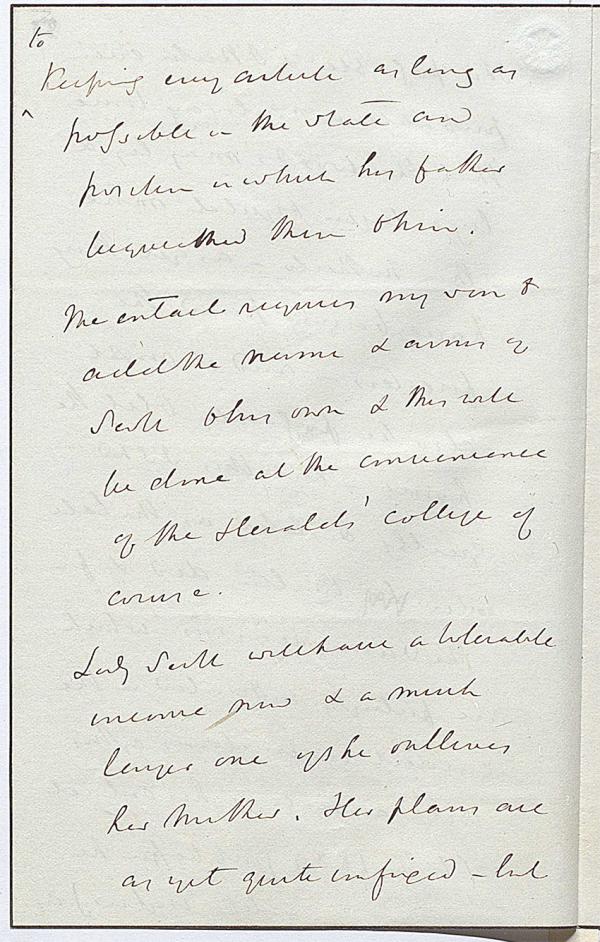 to
^ Keeping every article as long as
possible in the state and
position in which his father
bequeathed them to him.
The entail requires my son to
add the name & arms of
Scott to his own & this will
be done at the convenience
of the Heralds' College of
course.
Lady Scott will have a tolerable
income now & a much
larger one if she outlives
her mother. Her plans are
as yet quite unfixed - but